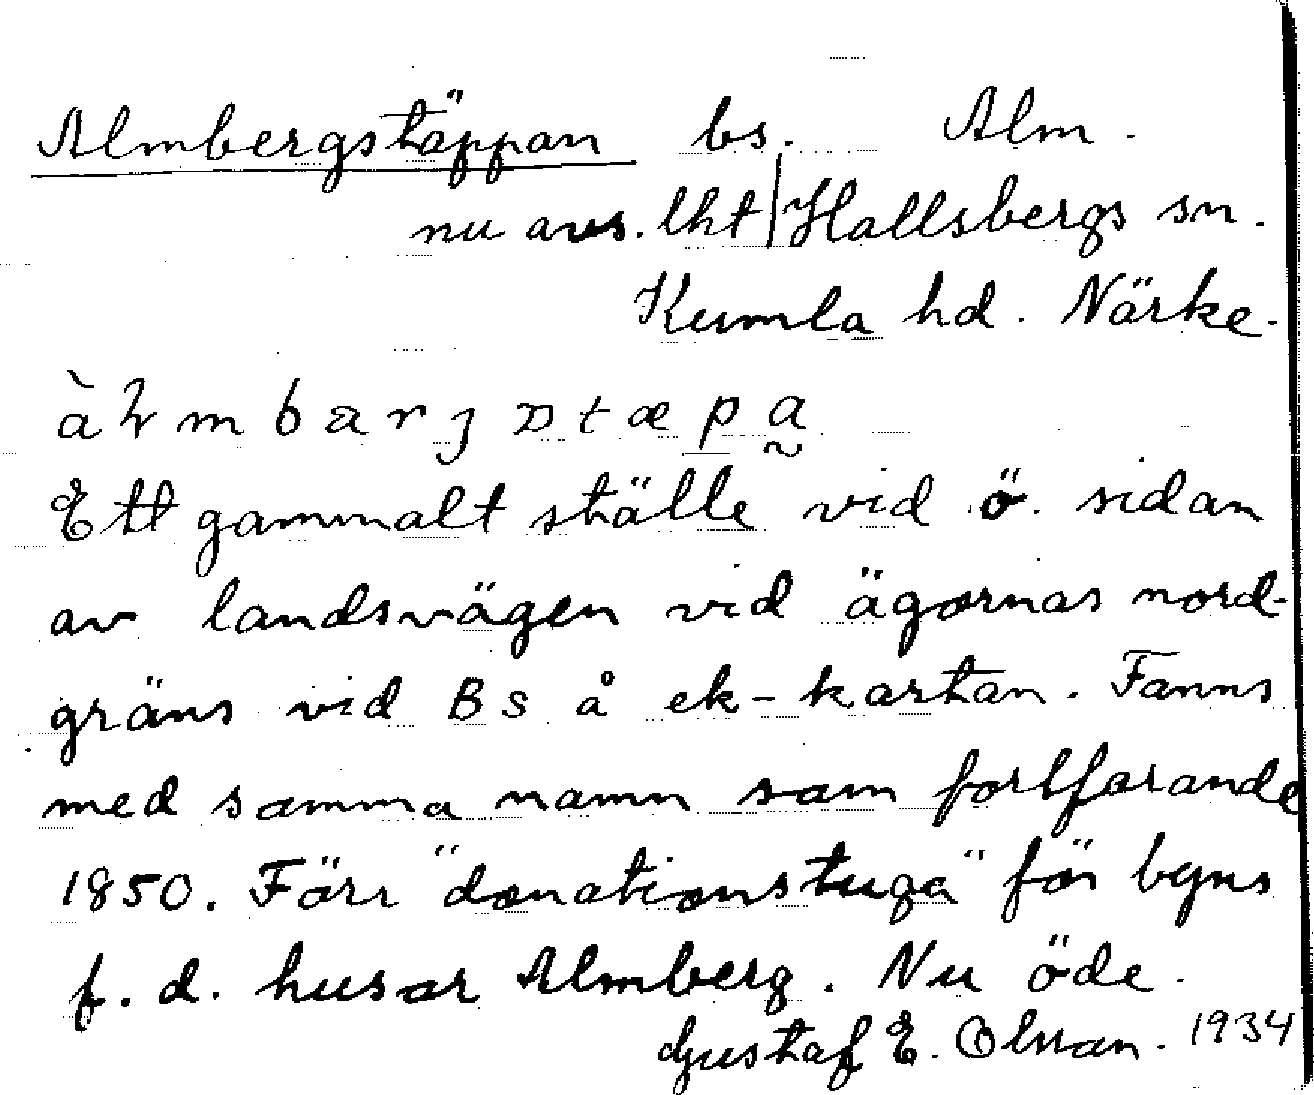 Almbergstäppan bs. Alm.
nu avs. lht | Hallsbergs sn.
Kumla hd. Närke.
Ett gammalt ställe vid ö. sidan
av landsvägen vid ägornas nord-
gräns vid Bs å ek-kartan. Fanns
med samma namn som fortfarande
1850. Förr "donationstuga" för byns
f. d. husar Almberg. Nu öde.
Gustaf E. Olsson. 1934